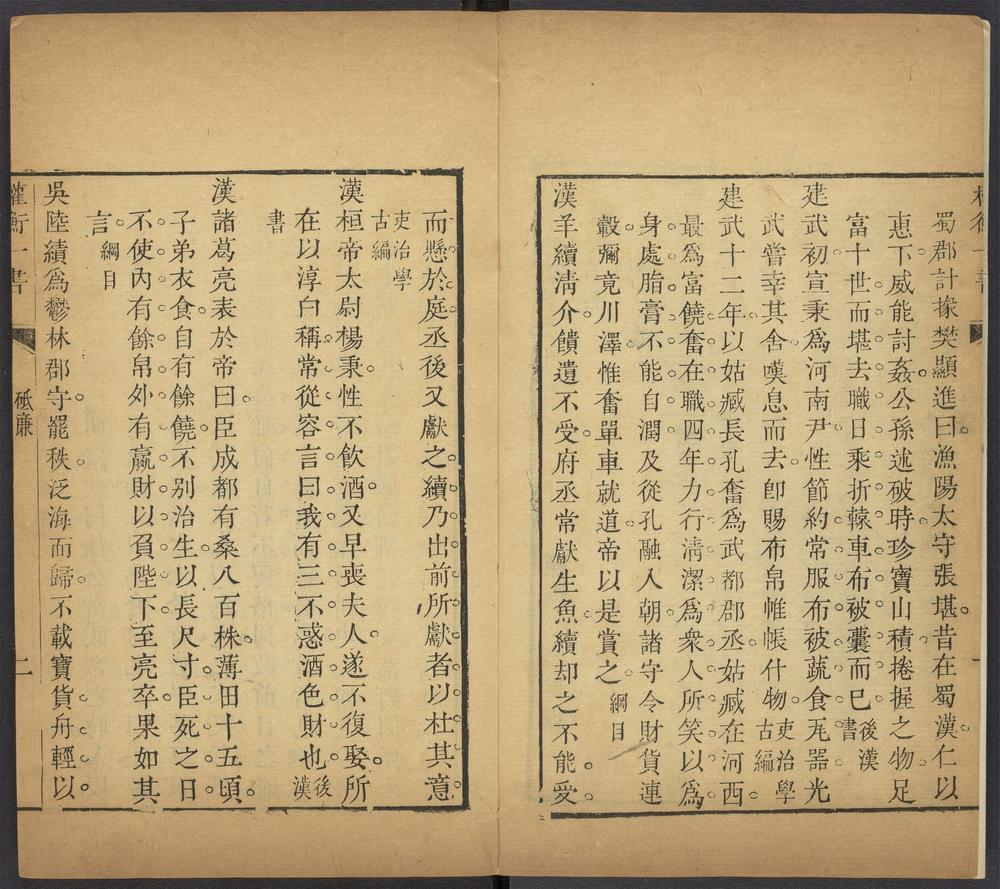 蜀郡計掾樊顯進曰漁陽太守張堪昔在蜀漢仁以
惠下威能討姦公孫述破時珍寶山積捲握之物足
富十世而堪去職日乘折轅車布被囊而已後漢書
建武初宣秉為河南尹性節約常服布被蔬食瓦器光
武嘗幸其舍嘆息而去卽賜布帛帷帳什物吏治學古編
建武十二年以姑臧長孔奮為武都郡丞姑臧在河西
最為富饒奮在職四年力行清潔為衆人所笑以為
身處脂膏不能自潤及從孔融入朝諸守令財貨連
轂彌竟川澤惟奮單車就道帝以是賞之綱目
漢羊續淸介饋遺不受府丞常獻生魚續却之不能愛
而懸於庭丞後又獻之續乃出前所獻者以杜其意
吏治學古編
漢桓帝太尉楊秉性不飮酒又早喪夫人遂不復娶所
在以淳白稱常從容言曰我有三不惑酒色財也後漢
書
漢諸葛亮表於帝曰臣成都有桑八百株薄田十五頃
子弟衣食自有餘饒不别治生以長尺寸臣死之日
不使內有餘帛外有贏財以負陛下至亮卒果如其
言綱目
吳陸績為鬱林郡守罷秩泛海而歸不載寶貨舟輕以
權衡一書
砥廉
二